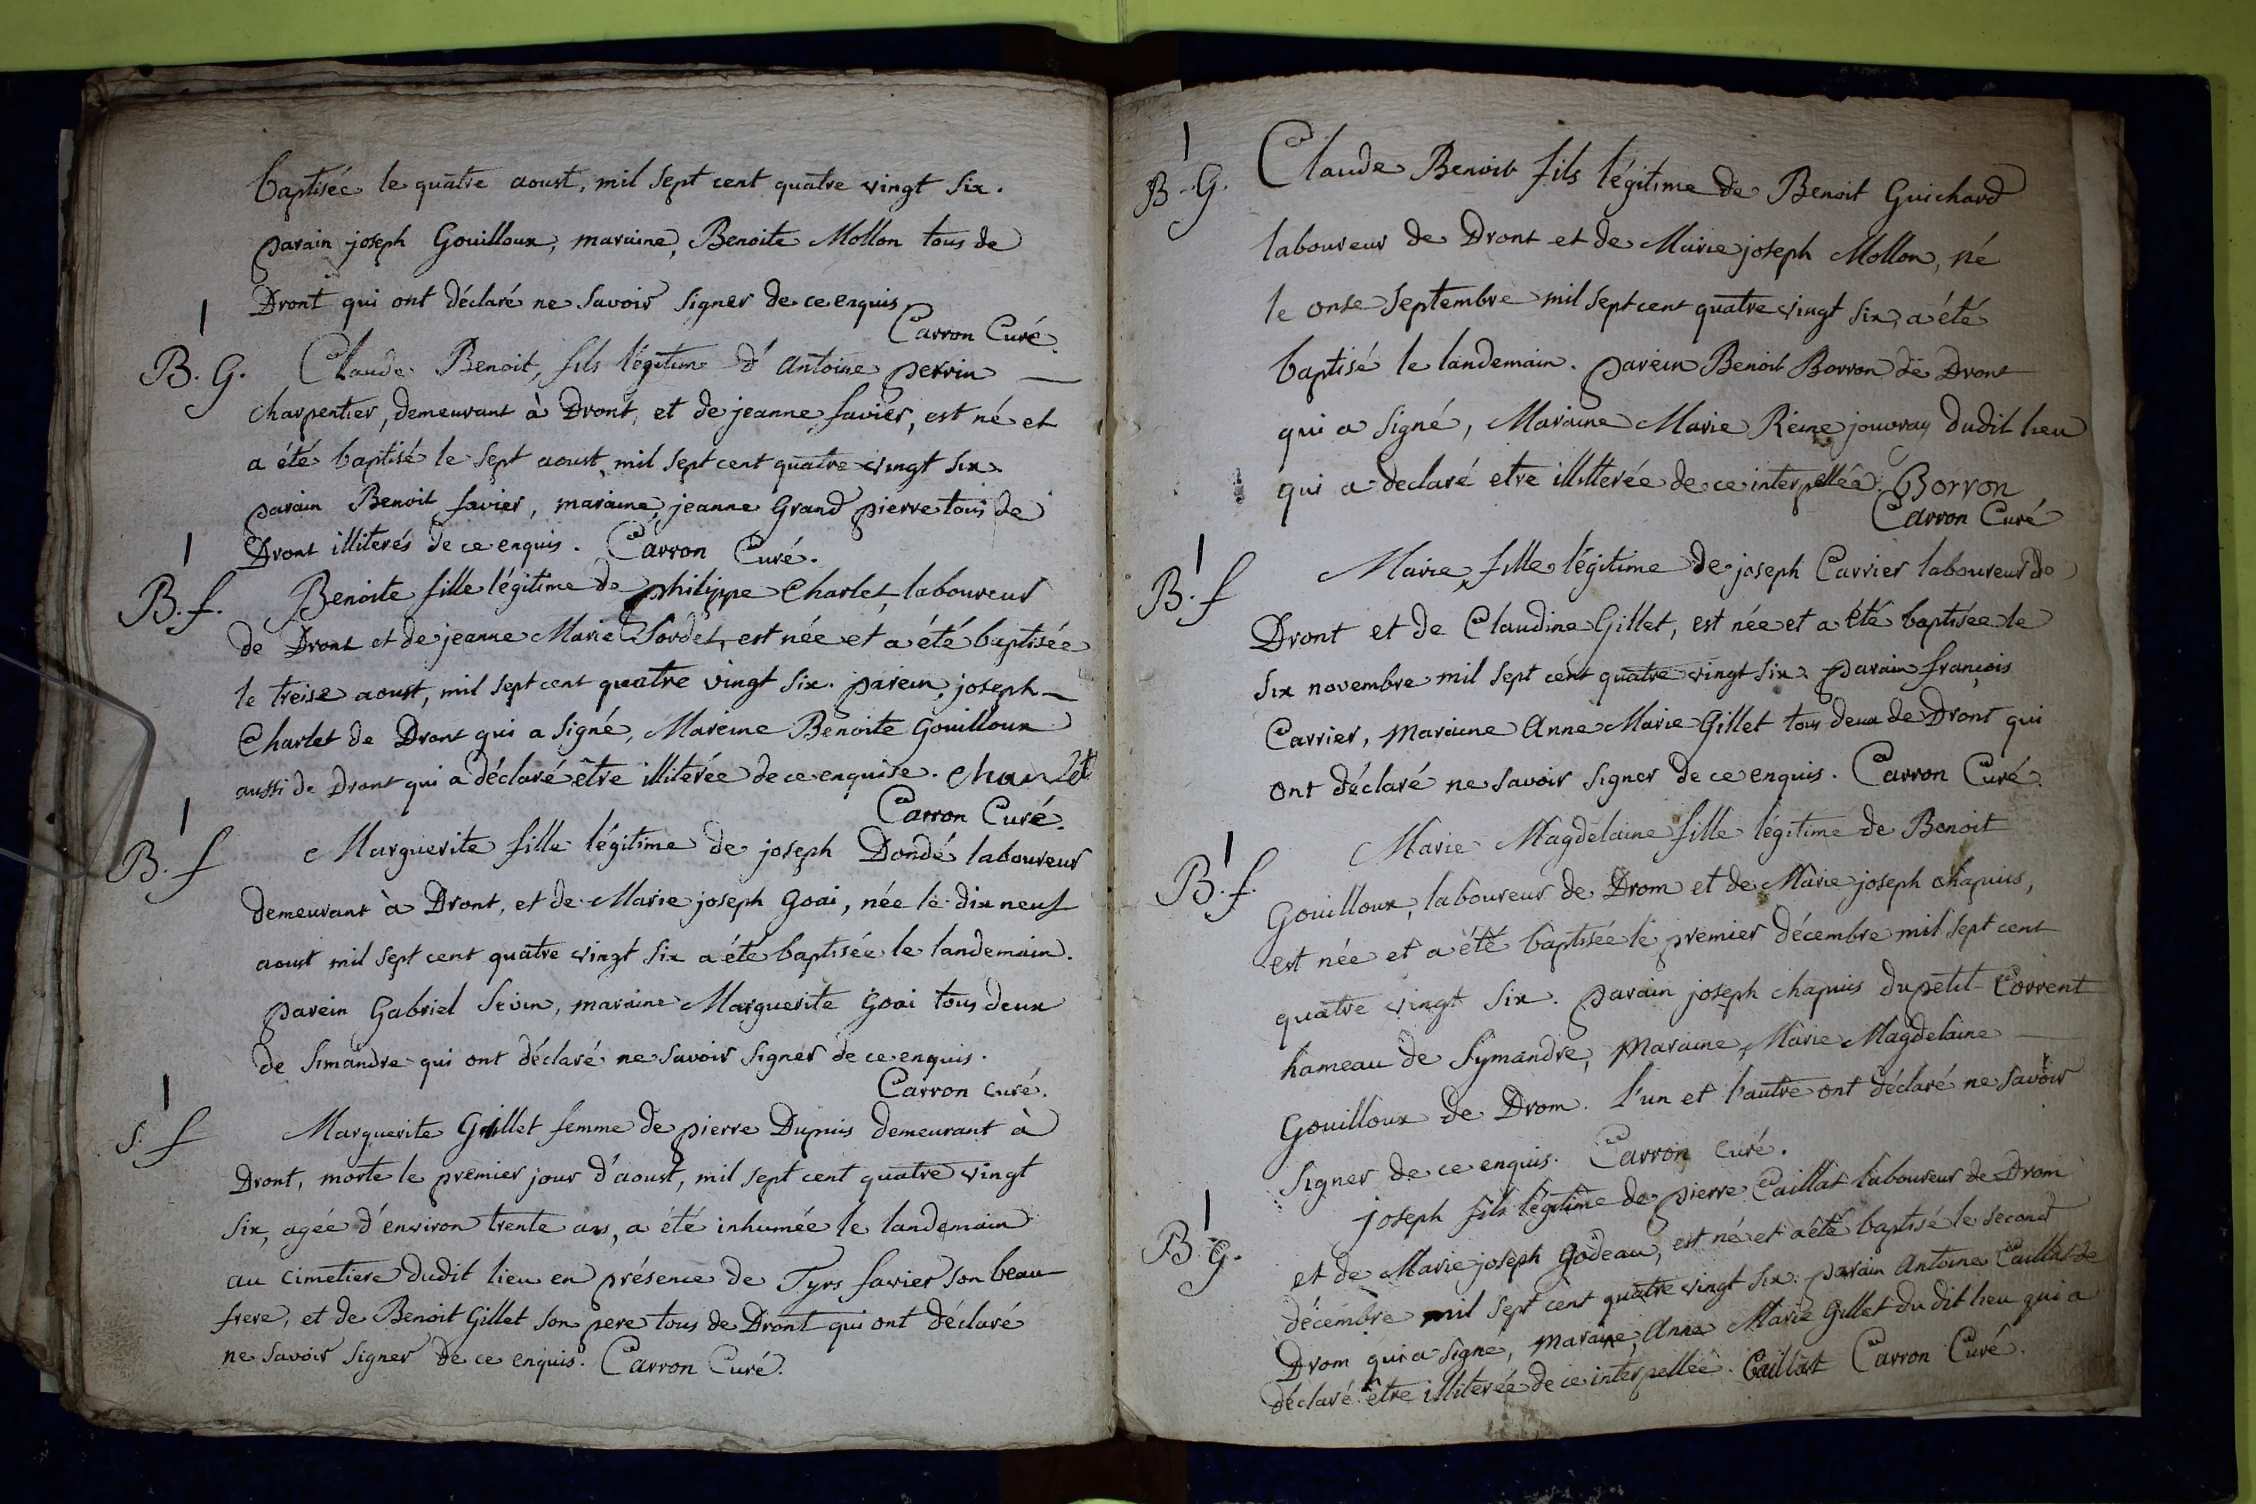 baptisée le quatre aoust, mil sept cent quatre vingt six.
parain joseph Gouilloux, maraine, Benoite Mollon tous de
Dront qui ont déclaré ne savoir signer de ce enquis
Carron Curé.
B. G. Claude Benoit, fils légitime d'antoine perrin
charpentier, demeurant à Dront, et de jeanne favier, est né et
a été baptisé le sept aoust mil sept cent quatre vingt six.
parain Benoit favier, maraine, jeanne Grand pierre tous de
Dront illiterés de ce enquis. Carron Curé.
B. f. Benoite fille légitime de philippe Charlet, laboureur
de Dront et de jeanne Marie Sordet, est née et a été baptisée
le treise aoust, mil sept cent quatre vingt six. parein, joseph
Charlet de Dront qui a signé, Mareine Benoite Gouilloux
aussi de Dront qui a déclaré être illiterée de ce enquise. charlet
Carron Curé.
B. f Marguerite fille légitime de joseph Dondé laboureur
demeurant à Dront, et de Marie joseph Goai, née le dix neuf
aoust mil sept cent quatre vingt six a été baptisée le landemain.
parein Gabriel Sevin, maraine Marguerite Goai tous deux
de Simandre qui ont déclaré ne savoir signer de ce enquis.
Carron curé.
S. f Marguerite Gillet femme de pierre Dupuis demeurant à
Dront, morte le premier jour d'aoust, mil sept cent quatre vingt
six, agée d'environ trente ans, a été inhumée le landemain
au cimetiere dudit lieu en présence de Tyrs favier son beau
frere, et de Benoit Gillet son pere tous de Dront qui ont déclaré
ne savoir signer de ce enquis. Carron Curé.
B. G. Claude Benoit fils légitime de Benoit Guichard
laboureur de Dront et de Marie joseph Mollon, né
le onse septembre mil sept cent quatre vingt six, a été
baptisé le landemain. parein Benoit Borron de Dront
qui a signé, Maraine Marie Reine jouvray dudit lieu
qui a declaré etre illitterée de ce interpellée. Borron
Carron Curé
B. f Marie, fille légitime de joseph Carrier laboureur de
Dront et de Claudine Gillet, est née et a été baptisée le
six novembre mil sept cent quatre vingt six. parain françois
Carrier, maraine Anne Marie Gillet tous deux de Dront qui
ont déclaré ne savoir signer de ce enquis. Carron Curé.
B. f. Marie Magdelaine fille légitime de Benoit
Gouilloux, laboureur de Drom et de Marie joseph chapuis,
est née et a été baptisée le premier décembre mil sept cent
quatre vingt six. parain joseph chapuis du petit Corrent
hameau de Symandre, maraine, Marie Magdelaine
Gouilloux de Drom. l'un et l'autre ont déclaré ne savoir
signer de ce enquis. Carron curé.
B. G. joseph fils légitime de pierre Caillat laboureur de Drom
et de Marie joseph Godeau, est né et a été baptisé le second
décembre mil sept cent quatre vingt six. parain Antoine Caillat de
Drom qui a signé, maraine, Anne Marie Gillet du dit lieu qui a
déclaré être illiterée de ce interpellée. Caillat Carron Curé.